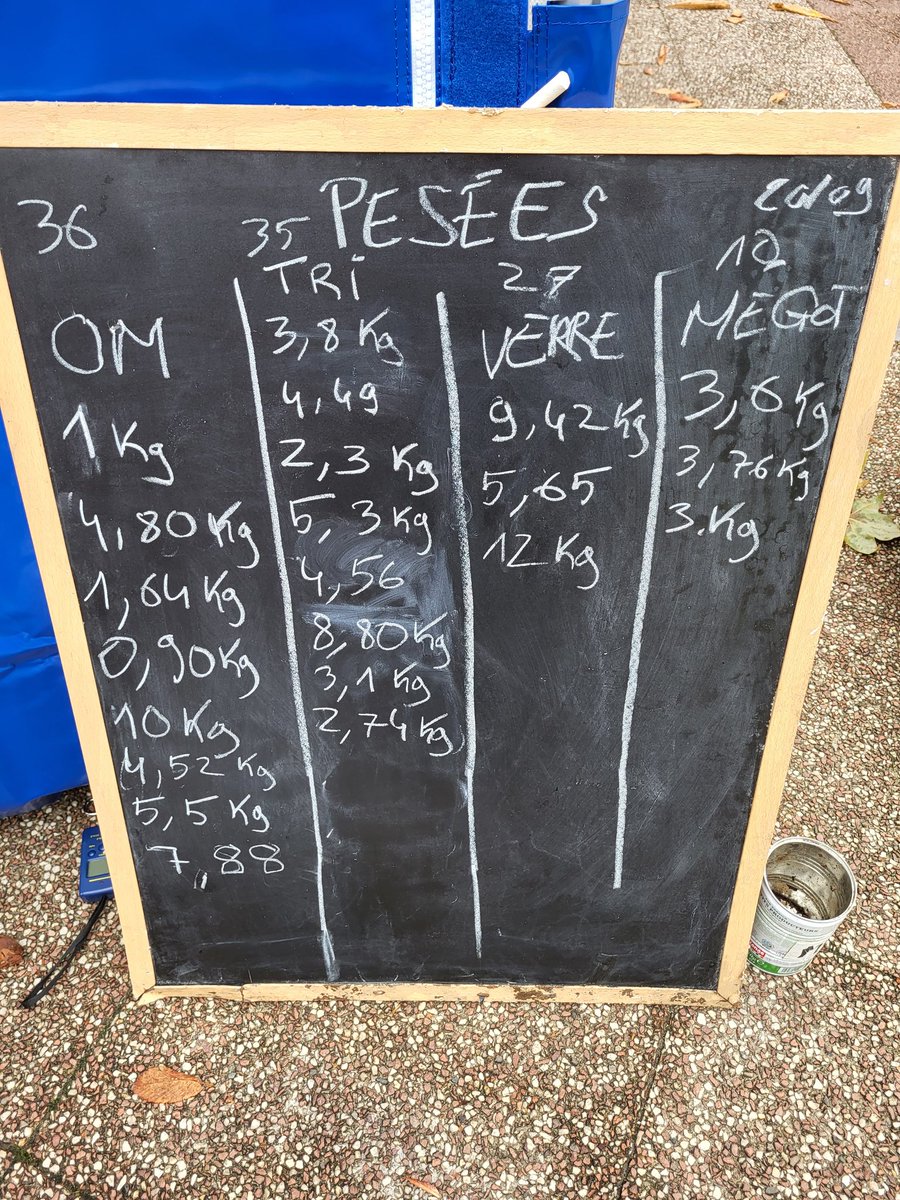 PESÉES
20/09
36
OM
1 Kg
4,80 Kg
1,64 Kg
0,90 Kg
10 Kg
4,52 Kg
5,5 Kg
7,88
35
TRI
3,8 Kg
4,49
2,3 Kg
5,3 Kg
4,56
8,80 Kg
3,1 Kg
2,74 Kg
27
VERRE
9,42 Kg
5,65
12 Kg
10
MÉGOT
3,6 Kg
3,76 Kg
3.Kg